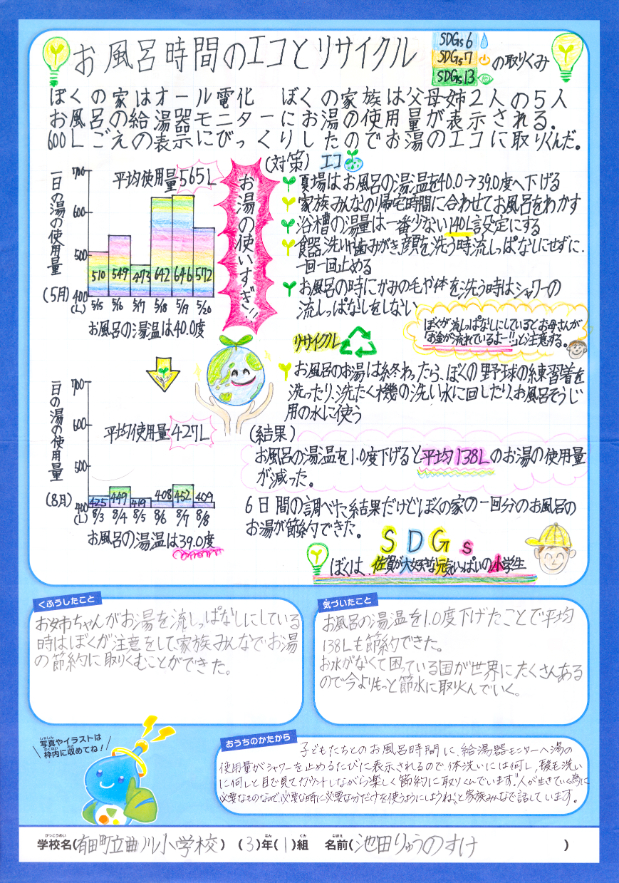 お風呂時間のエコとリサイクル
SDGs6
SDGs7
SDGs13
の取りくみ
ぼくの家はオール電化 ぼくの家族は父母姉2人の5人
お風呂の給湯器モニターにお湯の使用量が表示される。
600Lごえの表示にびっくりしたのでお湯のエコに取りくんだ。
一日の湯の使用量
(5月)
700
600
500
400
(L)
平均使用量565L
510 549 473 642 646 572
5/5 5/6 5/7 5/8 5/9 5/20
お風呂の湯温は40.0度
お湯の使いすぎ!!
(対策) エコ
夏場はお風呂の湯温を40.0→39.0度へ下げる
家族みんなの帰宅時間に合わせてお風呂をわかす
浴槽の湯量は一番少ない140L設定にする
食器洗い歯みがき、顔を洗う時流しっぱなしにせずに、
一回一回止める
お風呂の時にかみの毛や体を洗う時はシャワーの
流しっぱなしをしない
ぼくが流しっぱなしにしているとお母さんが
「お金が流れているよー!!」と注意する。
リサイクル
お風呂のお湯は終わったら、ぼくの野球の練習着を
洗ったり、洗たく機の洗い水に回したりお風呂そうじ
用の水に使う
一日の湯の使用量
(8月)
700
600
500
400
(L)
平均使用量427L
425 449 419 408 452 409
8/3 8/4 8/5 8/6 8/7 8/8
お風呂の湯温は39.0度
(結果)
お風呂の湯温を1.0度下げると平均138Lのお湯の使用量
が減った。
6日間の調べた結果だけどぼくの家の一回分のお風呂の
お湯が節約できた。
SDGs
ぼくは、佐賀が大好きな元気いっぱいの小学生
くふうしたこと
お姉ちゃんがお湯を流しっぱなしにしている
時はぼくが注意をして、家族みんなでお湯
の節約に取りくむことができた。
気づいたこと
お風呂の湯温を1.0度下げたことで平均
138Lも節約できた。
お水がなくて困っている国が世界にたくさんある
ので今よりもっと節水に取りくんでいく。
写真やイラストは
枠内に収めてね!
おうちのかたから
子どもたちとのお風呂時間に、給湯器モニターへ湯の
使用量がシャワーを止めるたびに表示されるので体洗いには何L、髪を洗い
に何Lと目で見てカウントしながら楽しく節約に取りくんでいます。
学校名(有田町立曲川小学校) (3)年(1)組 名前(池田りゅうのすけ)